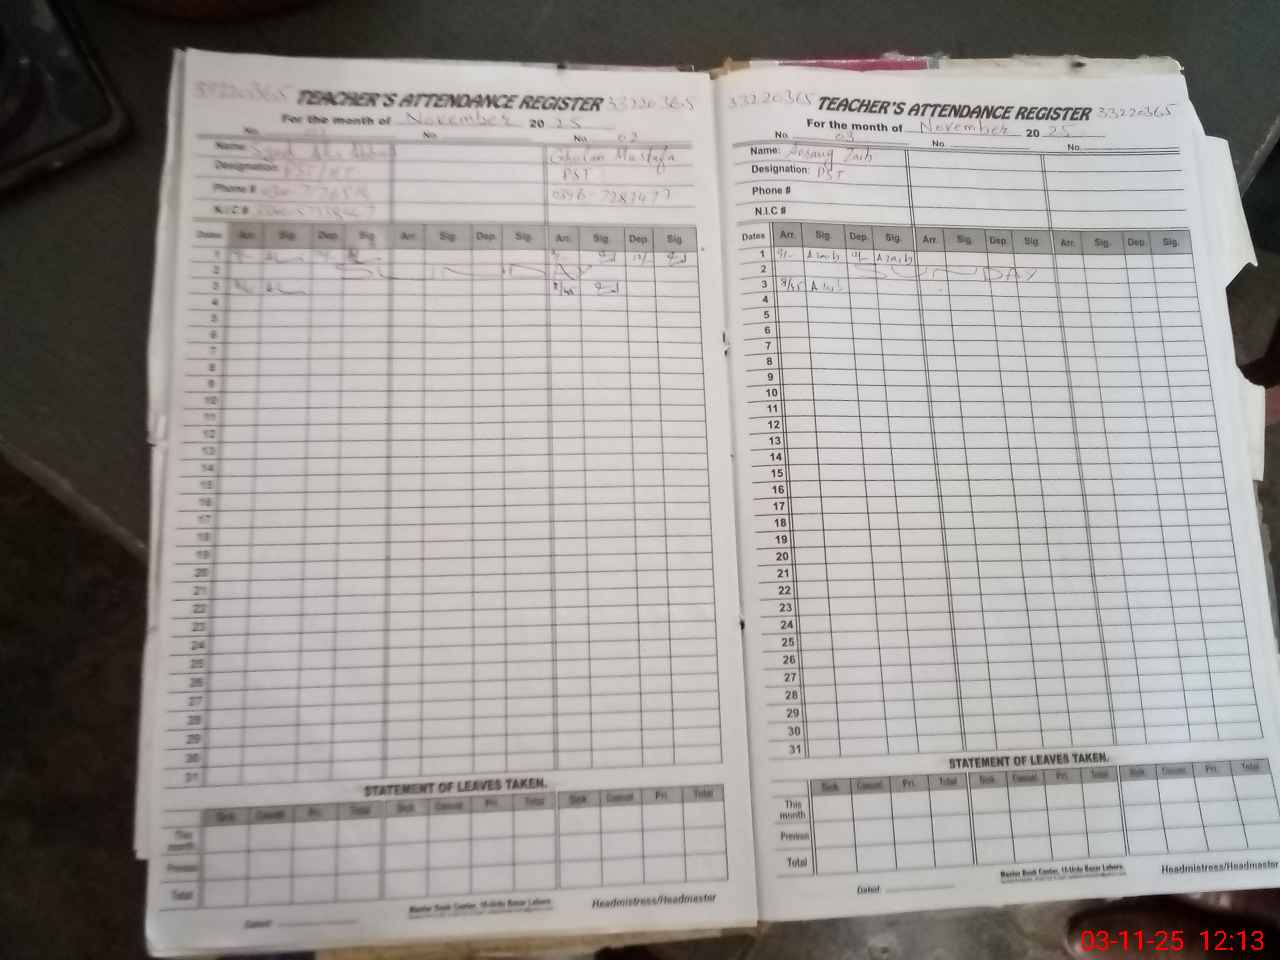 33220365 TEACHER'S ATTENDANCE REGISTER 33220365
For the month of November 20 25
No. No. No. 02
Name: Ghulam Mustafa
Designation: PST
Phone #
N.I.C #
Dates Arr. Sig. Dep. Sig. Arr. Sig. Dep. Sig. Arr. Sig. Dep. Sig.
1
2 SUNDAY
3 8/45
4
5
6
7
8
9
10
11
12
13
14
15
16
17
18
19
20
21
22
23
24
25
26
27
28
29
30
31
STATEMENT OF LEAVES TAKEN.
Sick Casual Pri. Total Sick Casual Pri. Total Sick Casual Pri. Total
This month
Previous
Total
Dated:
Master Book Center, 10-Urdu Bazar Lahore.
Headmistress/Headmaster
33220365 TEACHER'S ATTENDANCE REGISTER 33220365
For the month of November 20 25
No. 03 No. No.
Name: Zaib
Designation: PST
Phone #
N.I.C #
Dates Arr. Sig. Dep. Sig. Arr. Sig. Dep. Sig. Arr. Sig. Dep. Sig.
1
2 SUNDAY
3 8/45
4
5
6
7
8
9
10
11
12
13
14
15
16
17
18
19
20
21
22
23
24
25
26
27
28
29
30
31
STATEMENT OF LEAVES TAKEN.
Sick Casual Pri. Total Sick Casual Pri. Total Sick Casual Pri. Total
This month
Previous
Total
Dated:
Master Book Center, 10-Urdu Bazar Lahore.
Headmistress/Headmaster
03-11-25 12:13